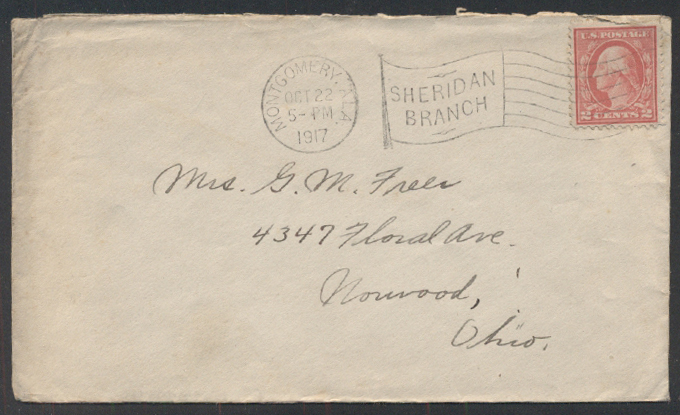 MONTGOMERY, ALA.
OCT 22
5-PM
1917
SHERIDAN
BRANCH
U.S. POSTAGE
2 CENTS 2
Mrs. G. M. Freer
4347 Floral Ave.
Norwood,
Ohio.